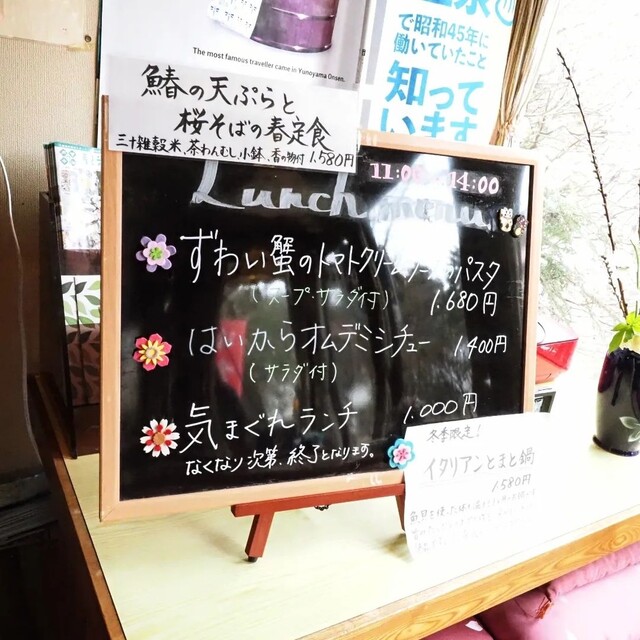 The most famous traveller came in Yunoyama Onsen.
で昭和45年に
働いていたこと
知って
います
鰆の天ぷらと
桜そばの春定食
三十雑穀米、茶わんむし、小鉢、香の物付 1,580円
Lunch menu
11:00 14:00
ずわい蟹のトマトクリームソースのパスタ
(スープ・サラダ付) 1.680円
はいからオムデミシチュー 1,400円
(サラダ付)
気まぐれランチ 1.000円
なくなり次第、終了となります。
冬季限定!
イタリアンとまと鍋
1580円